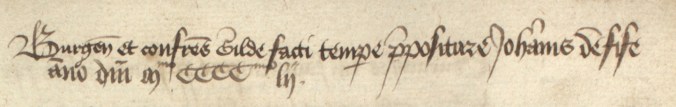 Burgen̄ et confrēs Gilde facti tempe p̄positure Joh̄annis de fife
ānō dn̄i mͦ CCCCͦ lijͦ.